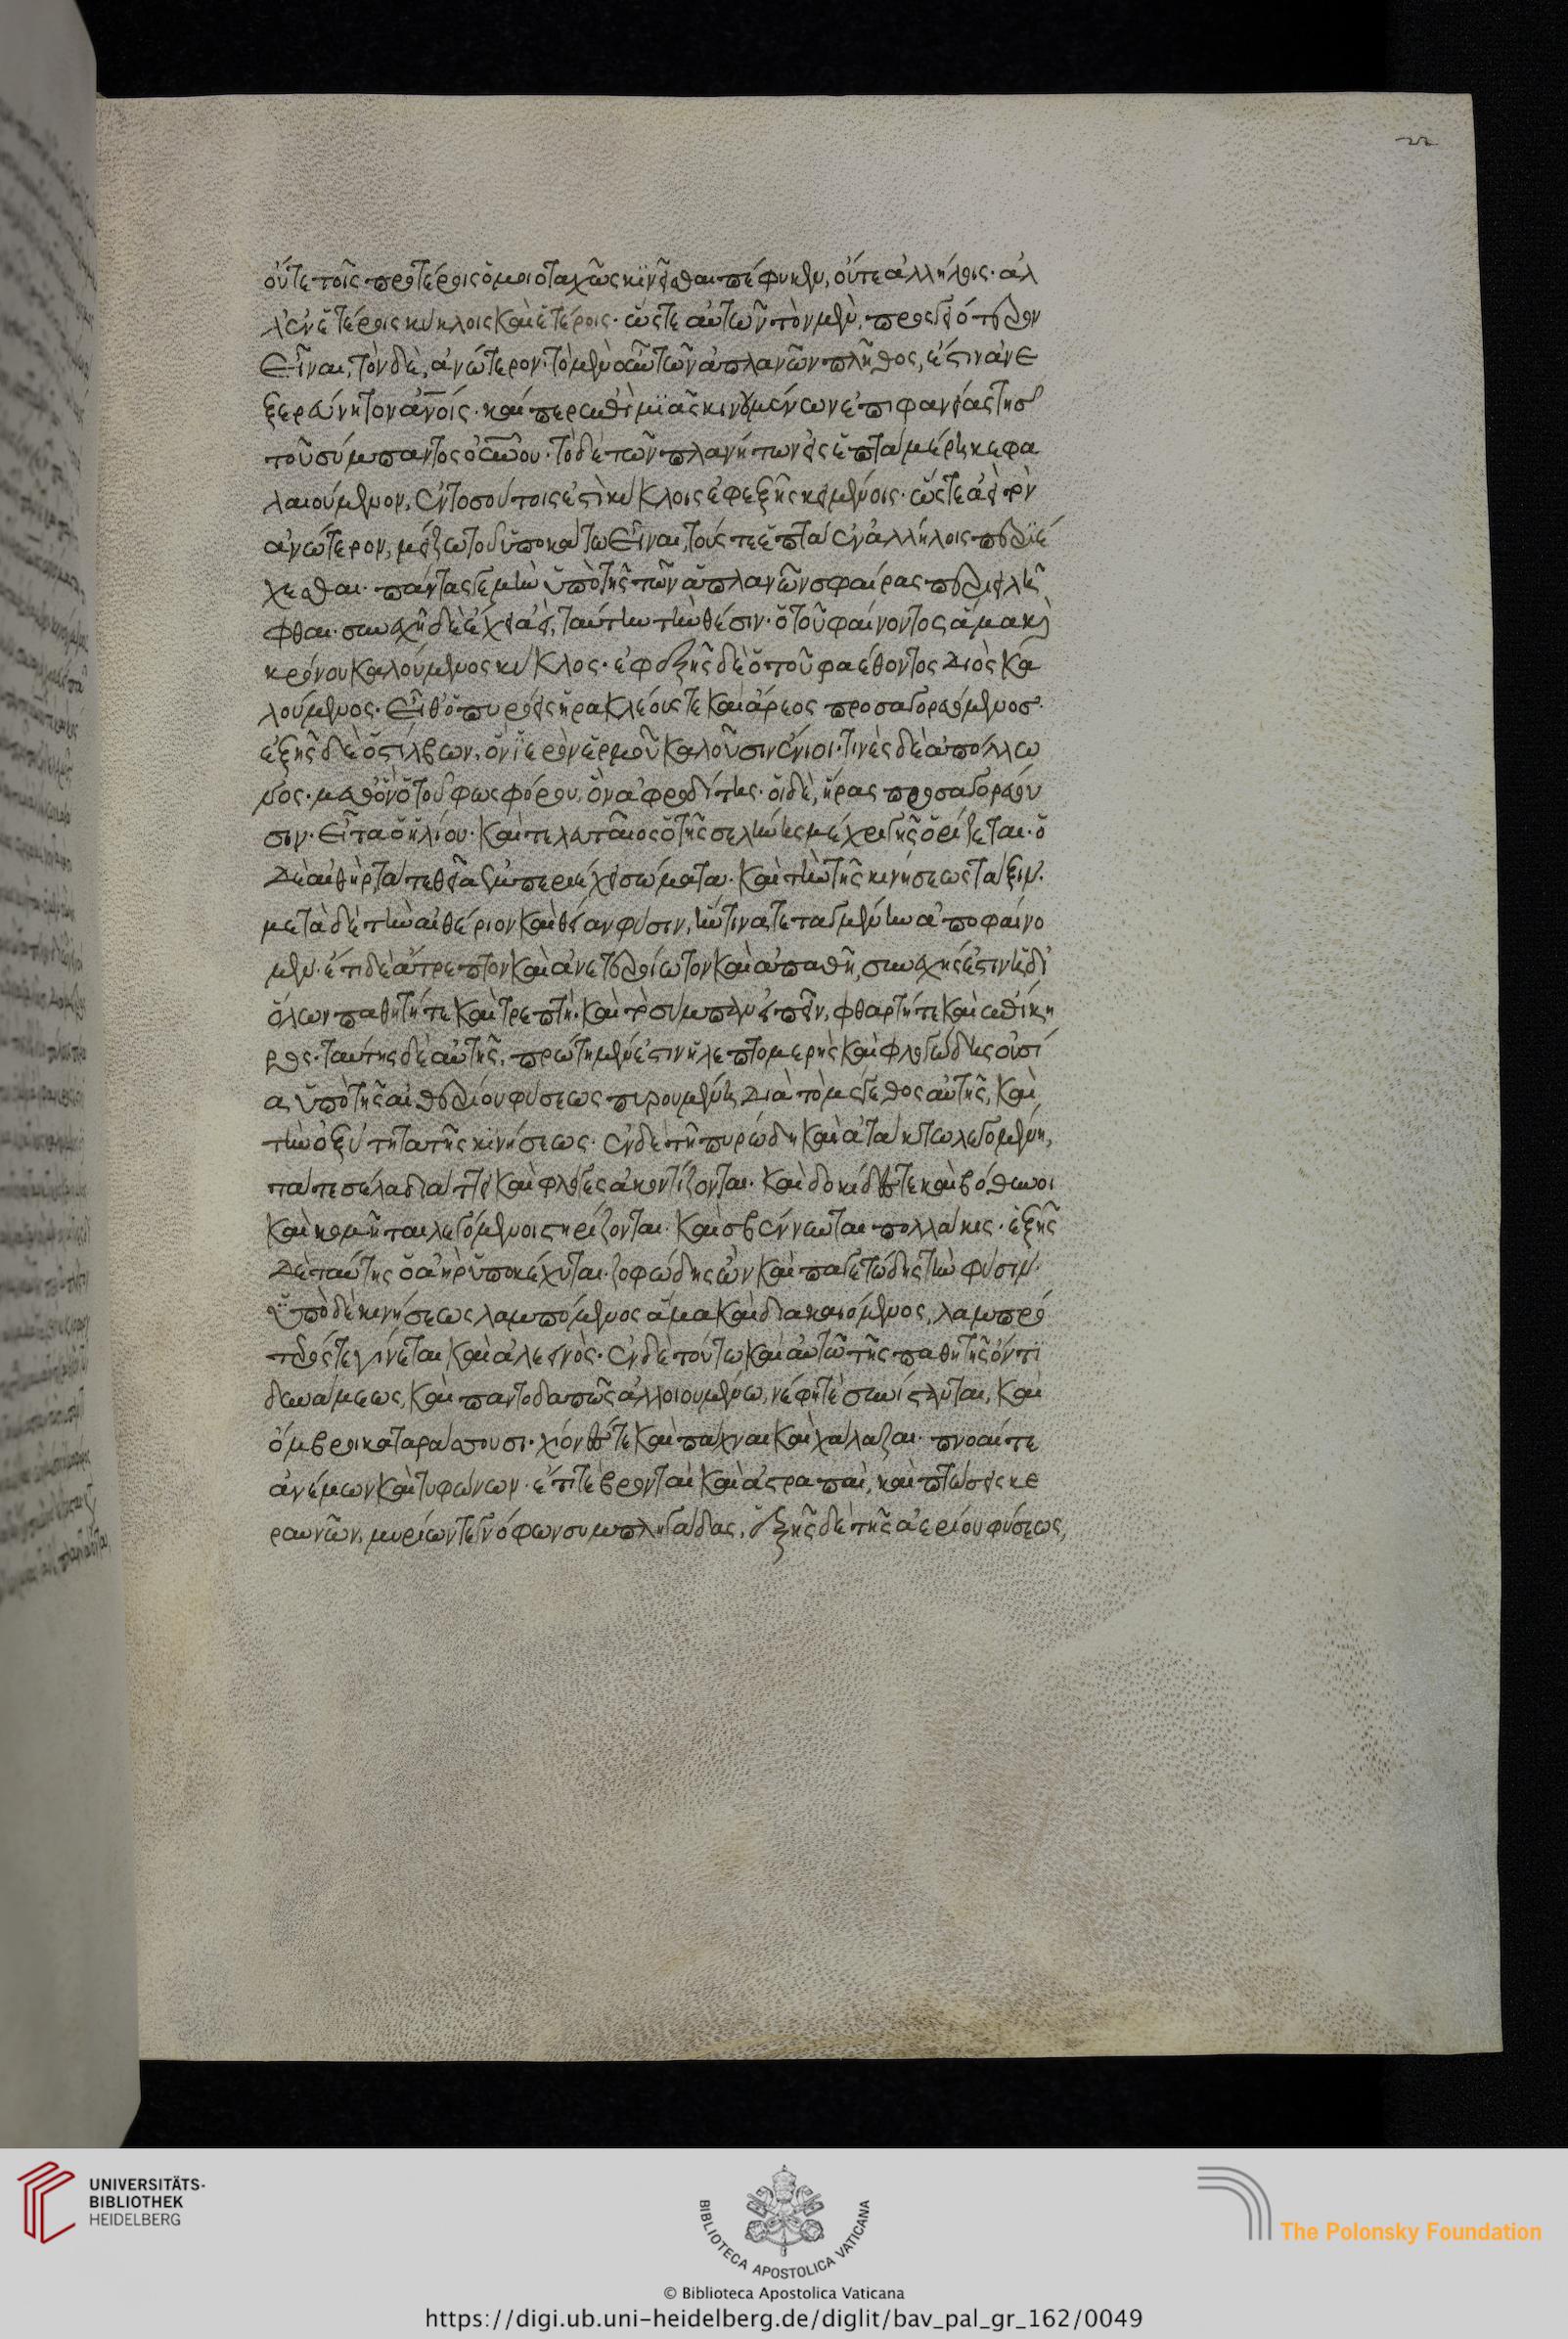 22
οὔτε τοῖς προτέροις ὁμοιοταχῶς κινεῖσθαι πέφυκεν, οὔτε ἀλλήλοις· ἀλ
λ' ἐν ἑτέροις κύκλοις καὶ ἑτέροις· ὥστε αὐτῶν τὸν μὲν, προσγειότερον
εἶναι, τὸν δὲ, ἀνώτερον· τὸ μὲν οὖν τῶν ἀπλανῶν πλῆθος, ἐστὶν ἀνε
ξερεύνητον ἀνοις· καίπερ ἐπὶ μιᾶς κινουμένων ἐπιφανείας τῆσ
τοῦ σύμπαντος οὐνου· τὸ δὲ τῶν πλανήτων εἰς ἑπτὰ μέρη κεφα
λαιούμενον, ἐν τοσούτοις ἐστὶ κύκλοις ἐφεξῆς κειμένοις· ὥστε ἀεὶ τὸν
ἀνώτερον, μείζω τοῦ ὑποκάτω εἶναι, τούς τε ἑπτὰ ἐν ἀλλήλοις περιέ
χεσθαι· πάντας γε μὴν ὑπὸ τῆς τῶν ἀπλανῶν σφαίρας περιειλῆ
φθαι· συνεχῆ δὲ ἔχει ἀεὶ, ταύτην τὴν θέσιν· ὁ τοῦ φαίνοντος ἅμα καὶ
κρόνου καλούμενος κύκλος· ἐφεξῆς δὲ ὁ τοῦ φαέθοντος διὸς κα
λούμενος· εἶθ' ὁ πυρόεις ἡρακλέους τε καὶ ἄρεος προσαγορευόμενοσ·
ἑξῆς δὲ ὁ στίλβων, ὃν ἱερὸν ἑρμοῦ καλοῦσιν ἔνιοι· τινὲς δὲ ἀπόλλω
νος· μεθ' ὃν ὁ τοῦ φωςφόρου, ὃν ἀφροδίτης· οἱ δὲ, ἥρας προσαγορεύου
σιν· εἶτα ὁ ἡλίου· καὶ τελευταῖος ὁ τῆς σελήνης μέχρι γῆς ὁρίζεται· ὁ
δὲ αἰθὴρ, τά τε θεῖα ἐμπεριέχει σώματα· καὶ τὴν τῆς κινήσεως τάξιν·
μετὰ δὲ τὴν αἰθέριον καὶ θείαν φύσιν, ἥντινα τεταγμένην ἀποφαίνο
μεν· ἔτι δὲ ἄτρεπτον καὶ ἀνετεροίωτον καὶ ἀπαθῆ, συνεχής ἐστιν ἡ δι'
ὅλων παθητή τε καὶ τρεπτὴ· καὶ τὸ σύμπαν εἰπεῖν, φθαρτή τε καὶ ἐπίκη
ρος· ταύτης δὲ αὐτῆς, πρώτη μέν ἐστιν ἡ λεπτομερὴς καὶ φλογώδης οὐσί
α, ὑπὸ τῆς αἰθερίου φύσεως πυρουμένη διὰ τὸ μέγεθος αὐτῆς, καὶ
τὴν ὀξύτητα τῆς κινήσεως· ἐν δὲ τῇ πυρώδει καὶ ἀτάκτω λεγομένη,
τά τε σέλα διάττει καὶ φλόγες ἀκοντίζονται· καὶ δοκίδες τε καὶ βόθυνοι
καὶ κομῆται λεγόμενοι στηρίζονται· καὶ σβέννυνται πολλάκις· ἑξῆς
δὲ ταύτης ὁ ἀὴρ ὑποκέχυται· ζοφώδης ὢν καὶ παγετώδης τὴν φύσιν·
ὑπὸ δὲ κινήσεως λαμπόμενος ἅμα καὶ διακαιόμενος, λαμπρό
τερός τε γίνεται καὶ ἀλεεινὸς· ἐν δὲ τούτω καὶ αὐτῶ τῆς παθητῆς ὄντι
δυνάμεως, καὶ παντοδαπῶς ἀλλοιουμένω, νέφη τὲ συνίσταται, καὶ
ὄμβροι καταράσσουσι· χιόνες τε καὶ πάχναι καὶ χάλαζαι· πνοαί τε
ἀνέμων καὶ τυφώνων· ἔτι τὲ βρονταὶ καὶ ἀστραπαὶ, καὶ πτώσεις κε
ραυνῶν, μυρίων τε γνόφων συμπληγάδας, ἑξῆς δὲ τῆς ἀερίου φύσεως,
UNIVERSITÄTS-
BIBLIOTHEK
HEIDELBERG
BIBLIOTECA APOSTOLICA VATICANA
The Polonsky Foundation
© Biblioteca Apostolica Vaticana
https://digi.ub.uni-heidelberg.de/diglit/bav_pal_gr_162/0049